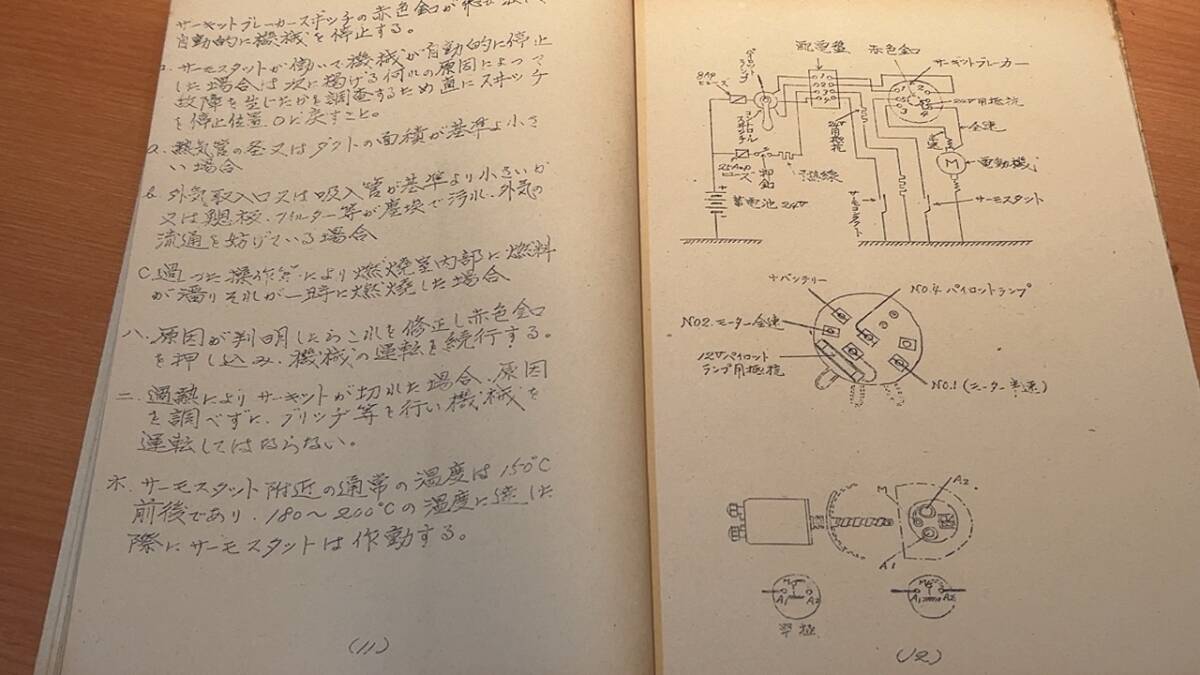 サーキットブレーカースイッチの赤色釦が
自動的に機械を停止する。
ロ. サーモスタットが働いて機械が自動的に停止
した場合は次に掲げる何れの原因によって
故障を生じたかを調査するため直にスヰッチ
を停止位置 0に戻すこと。
a. 熱気管の径又はダクトの面積が基準より小さ
い場合
b 外気取入口又は吸入管が基準より小さいか
又は フィルター等が塵埃で汚れ、外気の
流通を妨げている場合
C. 過った操作等により燃焼室内部に燃料
が溜りそれが一時に燃焼した場合
ハ. 原因が判明したらこれを修正し赤色釦
を押し込み、機械の運転を続行する。
ニ. 過熱によりサーキットが切れた場合、原因
を調べずに、ブリッヂ等を行い機械を
運転してはならない。
ホ. サーモスタット附近の通常の温度は150°C
前後であり、180〜200°Cの温度に達した
際にサーモスタットは作動する。
(11)
配電盤 赤色釦
サーキットブレーカー
8Ap
ヒューズ
パイロットランプ
コントロールスイッチ
24V用抵抗
24V用抵抗
全速
半速
M 電動機
25Amp
ヒューズ
押釦
予熱線
蓄電池 24V
サーモコンタクト
サーモスタット
+バッテリー
NO.4 パイロットランプ
NO2.モーター全速
12Vパイロット
ランプ用抵抗
NO.1 (モーター半速)
M
A2
A1
M
A1 A2
M
A1 A2
(12)